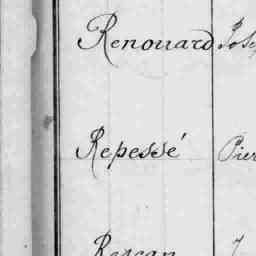 Renouard Jose
Repessé Pier
Rescan J